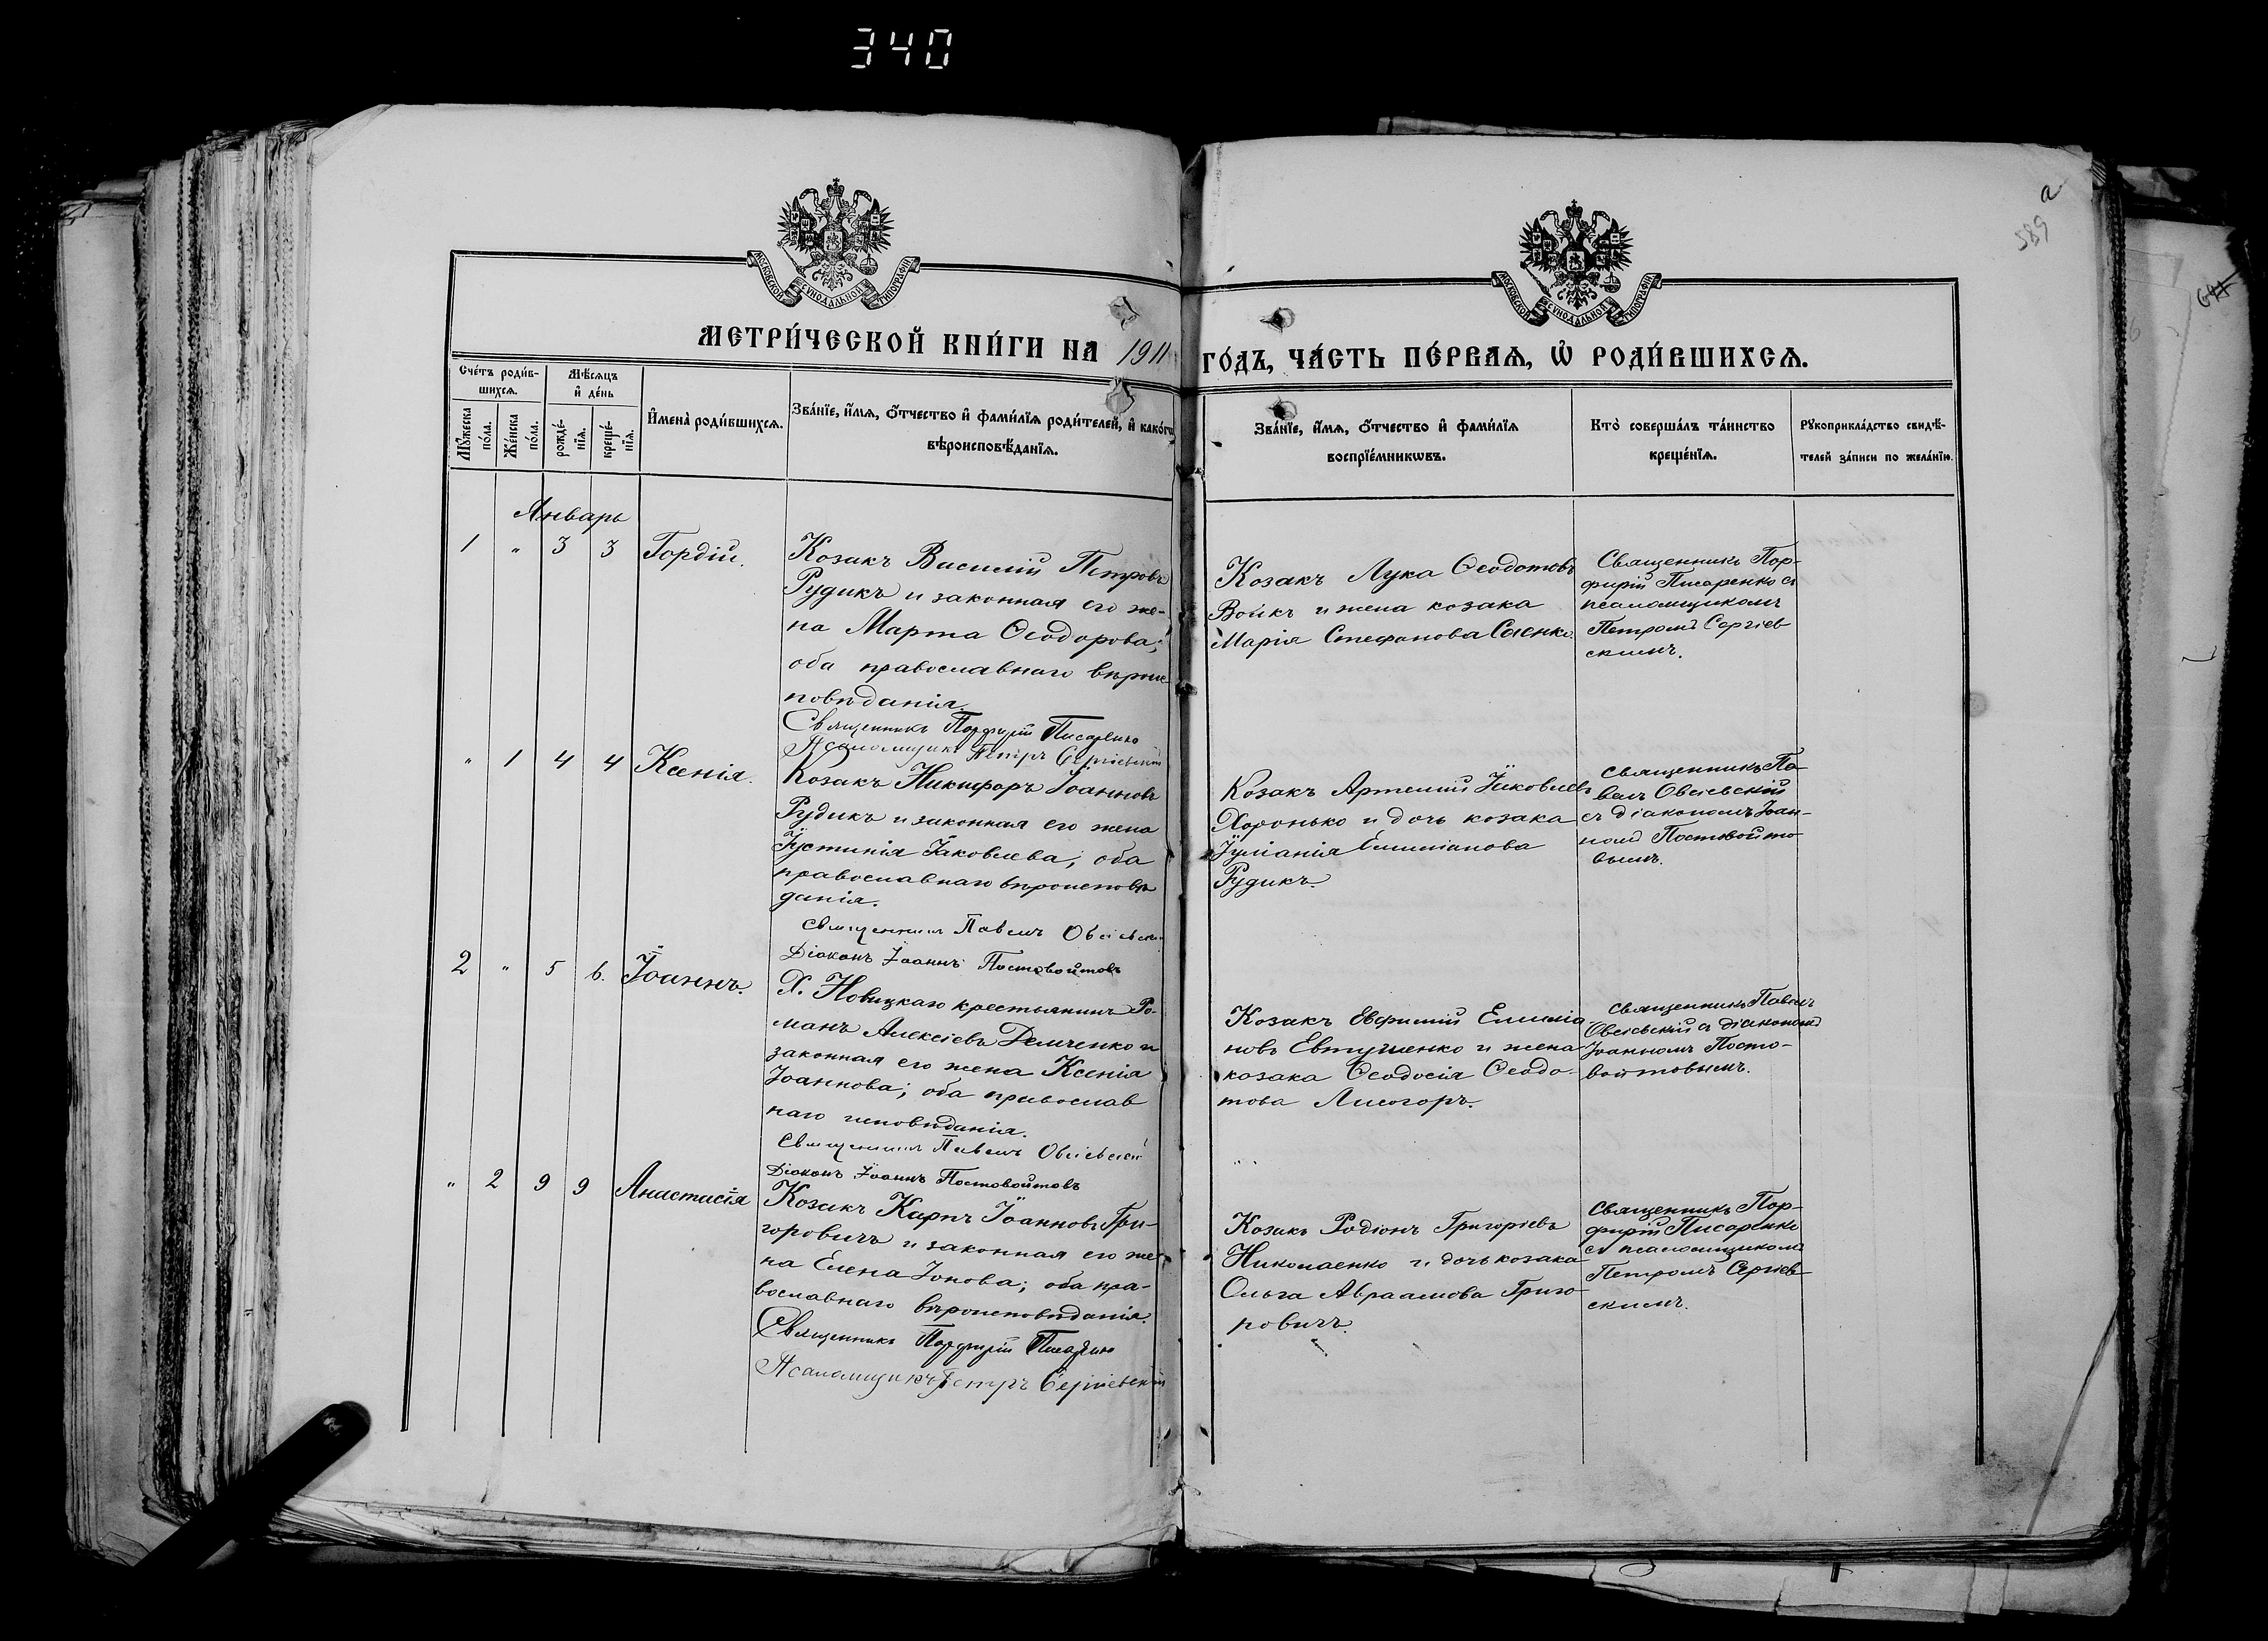 340
а
589
МОСКОВСКОЙ СУНОДАЛЬНОЙ ТИПОГРАФІИ
МОСКОВСКОЙ СУНОДАЛЬНОЙ ТИПОГРАФІИ
МЕТРИ́ЧЕСКОЙ КНИ́ГИ НА 1911 ГО́ДЪ, ЧА́СТЬ ПЕ́РВАѦ, Ѡ҆ РОДИ́ВШИХСѦ.
Сче́тъ роди́в-
шихсѧ.
Мꙋ́жеска
по́ла.
Же́нска
по́ла.
Мѣ́сѧцъ
и҆ де́нь
рожде́-
нїѧ.
креще́-
нїѧ.
И҆мена̀ роди́вшихсѧ.
Зва́нїе, и҆́мѧ, ѻ҆́тчество и҆ фами́лїѧ роди́телей, и҆ како́гѡ
вѣроисповѣ́данїѧ.
Зва́нїе, и҆́мѧ, ѻ҆́тчество и҆ фами́лїѧ
воспрїе́мникѡвъ.
Кто̀ соверша́лъ та́инство
креще́нїѧ.
Рꙋкоприкла́дство свидѣ́-
телей за́писи по жела́нїю.
Январь
1 " 3 3 Гордій.
Козакъ Василій Петровъ
Рудикъ и законная его же-
на Марта Ѳеодорова;
оба православнаго вѣроис-
повѣданія.
Священникъ Порфирій Писаренко
Псаломщикъ Петръ Сергіевскій
Козакъ Лука Ѳеодотовъ
Воикъ и жена козака
Марія Стефанова Саенко.
Священникъ Пор-
фирій Писаренко съ
псаломщикомъ
Петромъ Сергіев
скимъ.
" 1 4 4 Ксенія.
Козакъ Никифоръ Іоанновъ
Рудикъ и законная его жена
Іустинія Іаковлева; оба
православнаго вѣроисповѣ
данія.
Священникъ Павелъ Овсіевскій
Діаконъ Іоаннъ Постовойтовъ
Козакъ Артемій Іаковлевъ
Хоронько и дочь козака
Іуліанія Емиліанова
Рудикъ.
Священникъ Па-
велъ Овсіевскій
съ діакономъ Іоан-
номъ Постовойто
вымъ.
2 " 5 6. Іоаннъ.
Х. Новицкаго крестьянинъ Ро-
манъ Алексіевъ Демченко и
законная его жена Ксенія
Іоаннова; оба православ
наго исповѣданія.
Священникъ Павелъ Овсіевскій
Діаконъ Іоаннъ Постовойтовъ
Козакъ Евфимій Емилiа
новъ Евтушенко и жена
козака Ѳеодосія Ѳеодо-
това Лисогоръ.
Священникъ Павелъ
Овсіевскій съ діакономъ
Іоанномъ Посто-
войтовымъ.
" 2 9 9 Анастасія
Козакъ Карпъ Іоанновъ Гри-
горовичъ и законная его же
на Елена Іонова; оба пра-
вославнаго вѣроисповѣданія.
Священникъ Порфирій Писаренко
Псаломщикъ Петръ Сергіевскій
Козакъ Родіонъ Григоріевъ
Николаенко и дочь козака
Ольга Авраамова Григо
ровичъ.
Священникъ Пор-
фирій Писаренко
съ псаломщикомъ
Петромъ Сергіев-
скимъ.